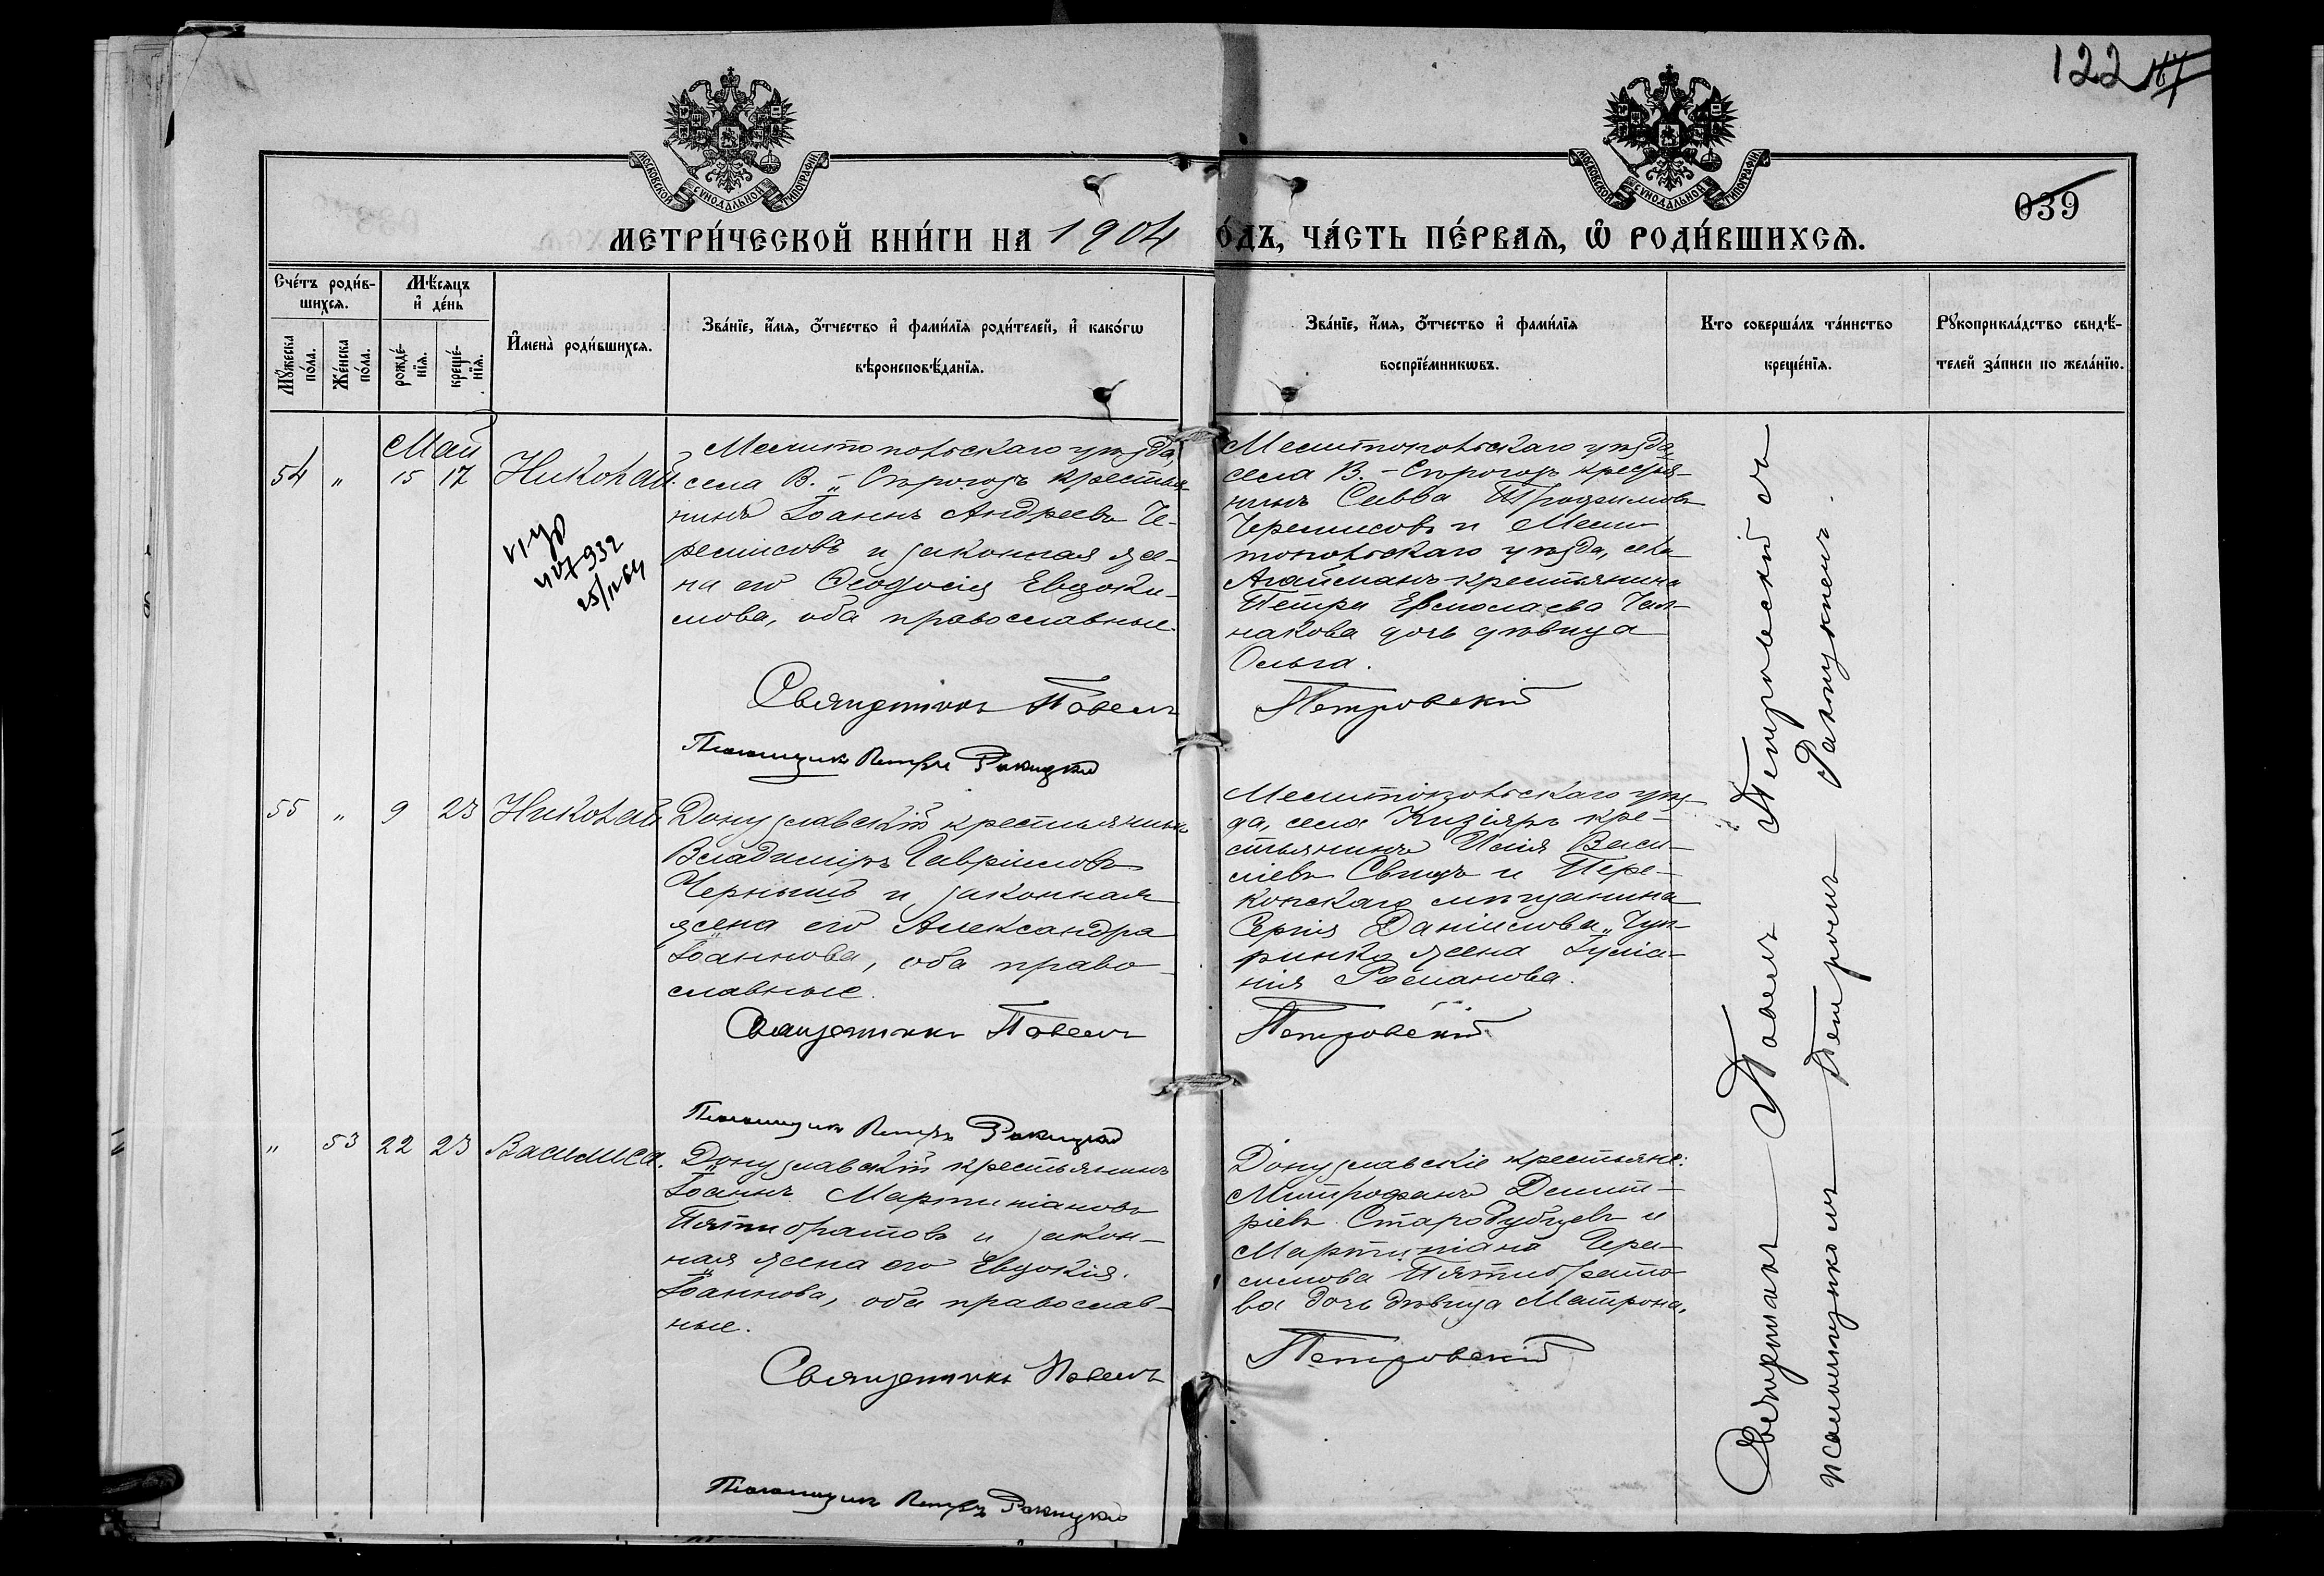 122 117
МОСКОВСКОЙ СѴНОДАЛЬНОЙ ТИПОГРАФІИ
МОСКОВСКОЙ СѴНОДАЛЬНОЙ ТИПОГРАФІИ
039
МЕТРИ́ЧЕСКОЙ КНИ́ГИ НА 1904
О́ДЪ, ЧА́СТЬ ПЕ́РВАѦ, Ѽ РОДИ́ВШИХСѦ.
Сче́тъ роди́в-
шихсѧ.
Мѣ́сѧцъ
и҆ де́нь
Мꙋ́жеска
по́ла.
Же́нска
по́ла.
рожде́-
нїѧ.
креще́-
нїѧ.
И҆мена̀ роди́вшихсѧ.
Зва́нїе, и҆́мѧ, ѻ҆́тчество и҆ фами́лїѧ роди́телей, и҆ како́гѡ
вѣроисповѣ́данїѧ.
Зва́нїе, и҆́мѧ, ѻ҆́тчество и҆ фами́лїѧ
воспрїе́мникѡвъ.
Кто соверша́лъ та́инство
креще́нїѧ.
Рꙋкоприкла́дство свидѣ́-
телей за́писи по жела́нїю.
Май
54 " 15 17 Николай.
Мелитопольскаго уѣзда,
села В.-Сѣрогозъ крестья-
нинъ Іоаннъ Андреевъ Че-
ремисовъ и законная же-
на его Ѳеодосія Евдоки-
мова, оба православные.
Священникъ Павелъ
Псаломщикъ Петръ Ракицкій
Мелитопольскаго уѣзда,
села В.-Сѣрогозъ крестья-
нинъ Савва Трофимовъ
Черемисовъ и Мели-
топольскаго уѣзда, села
Агайманъ крестьянина
Петра Ермолаева
дочь дѣвица
Ольга.
Петровскій
25/II 64
55 " 9 23 Николай
Донузлавскій крестьянинъ
Владиміръ Гавріиловъ
Чернышъ и законная
жена его Александра
Іоаннова, оба право-
славные.
Священникъ Павелъ
Псаломщикъ Петръ Ракицкій
Мелитопольскаго уѣз-
да, села Кизіяръ кре-
стьянинъ Илія Васи-
ліевъ и Пере-
копскаго мѣщанина
Сергія Даніилова Чуп-
ринка жена Іуліа-
нія Романова.
Петровскій
" 53 22 23 Васильса.
Донузлавскій крестьянинъ
Іоаннъ Мартиніановъ
Пятибратовъ и закон-
ная жена его Евдокія
Іоаннова, оба православ-
ные.
Священникъ Павелъ
Псаломщикъ Петръ Ракицкій
Донузлавскіе крестьяне:
Митрофанъ Димит-
ріевъ Стародубцевъ и
Мартиніана Гера-
симова Пятибрато-
ва дочь дѣвица Матрона.
Петровскій
Священникъ Павелъ Петровскій съ
псаломщикомъ Петромъ Ракицкимъ.